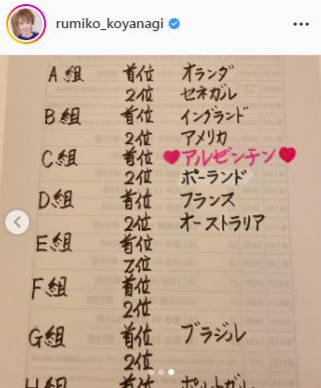 rumiko_koyanagi
A組 首位 オランダ
2位 セネガル
B組 首位 イングランド
2位 アメリカ
C組 首位 ♥アルゼンチン♥
2位 ポーランド
D組 首位 フランス
2位 オーストラリア
E組 首位
2位
F組 首位
2位
G組 首位 ブラジル
2位
H組 首位 ポルトガル